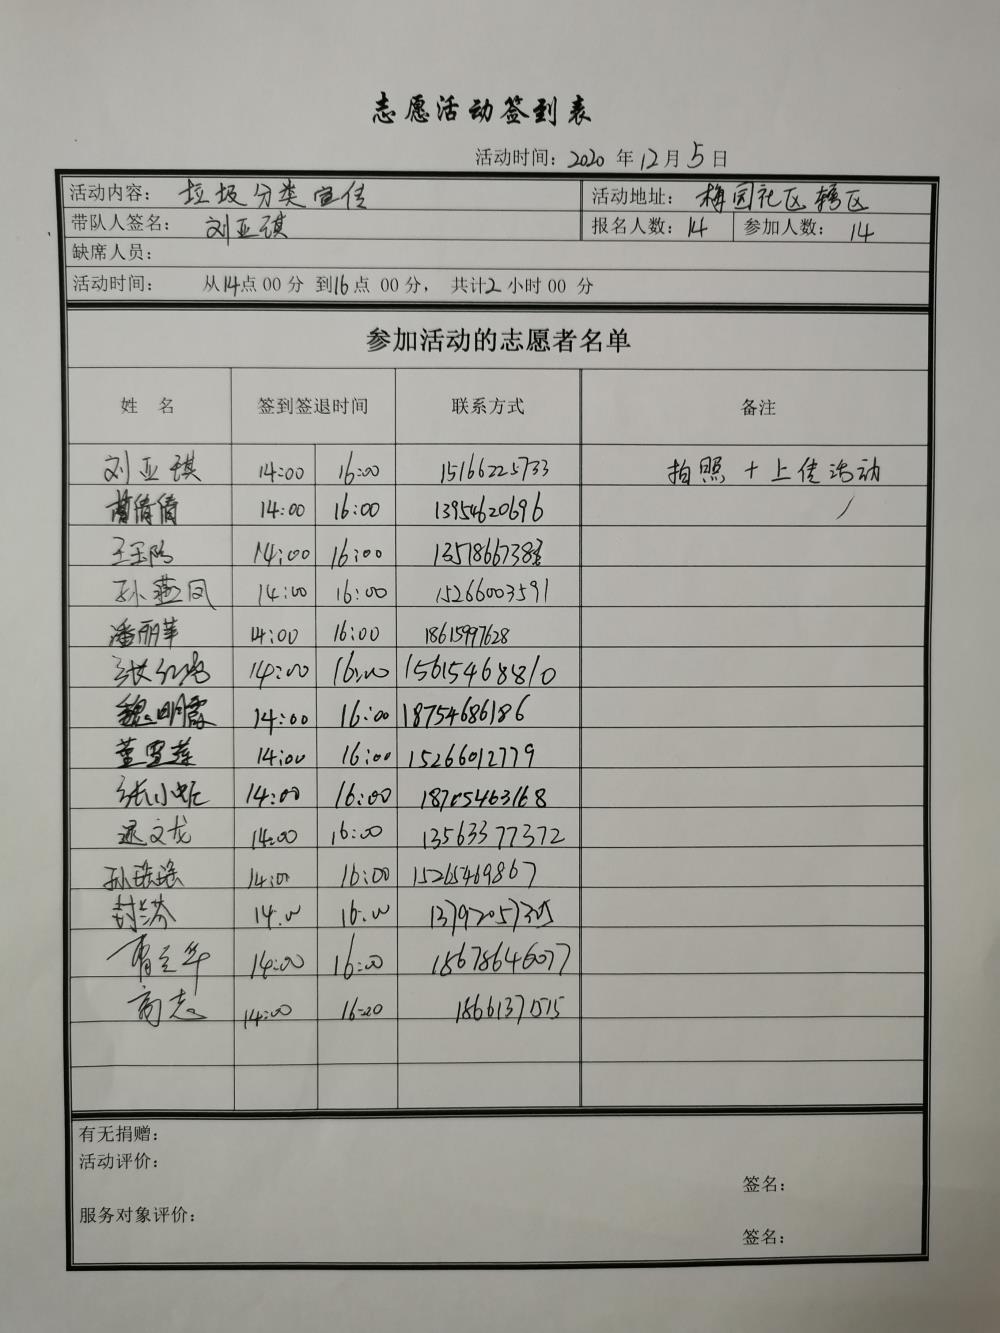 志愿活动签到表
活动时间：2020 年 12 月 5 日
活动内容： 垃圾分类宣传 活动地址： 梅园社区辖区
带队人签名： 刘亚琪 报名人数：14 参加人数： 14
缺席人员：
活动时间： 从14点 00 分 到16点 00 分， 共计2 小时 00 分
参加活动的志愿者名单
姓 名 签到签退时间 联系方式 备注
刘亚琪 14:00 16:00 15166225733 拍照 + 上传活动
倩倩 14:00 16:00 13954620696 /
14:00 16:00
孙燕凤 14:00 16:00 15266003591
潘丽华 14:00 16:00 18615997628
张红 14:00 16:00 15615468810
魏明霞 14:00 16:00 18754686186
董雪莲 14:00 16:00 15266012779
张小 14:00 16:00 18705463168
文龙 14:00 16:00 13563377372
孙瑶瑶 14:00 16:00 15265469867
14:00 16:00
14:00 16:00 18678646077
商志 14:00 16:00
有无捐赠：
活动评价：
签名：
服务对象评价：
签名：